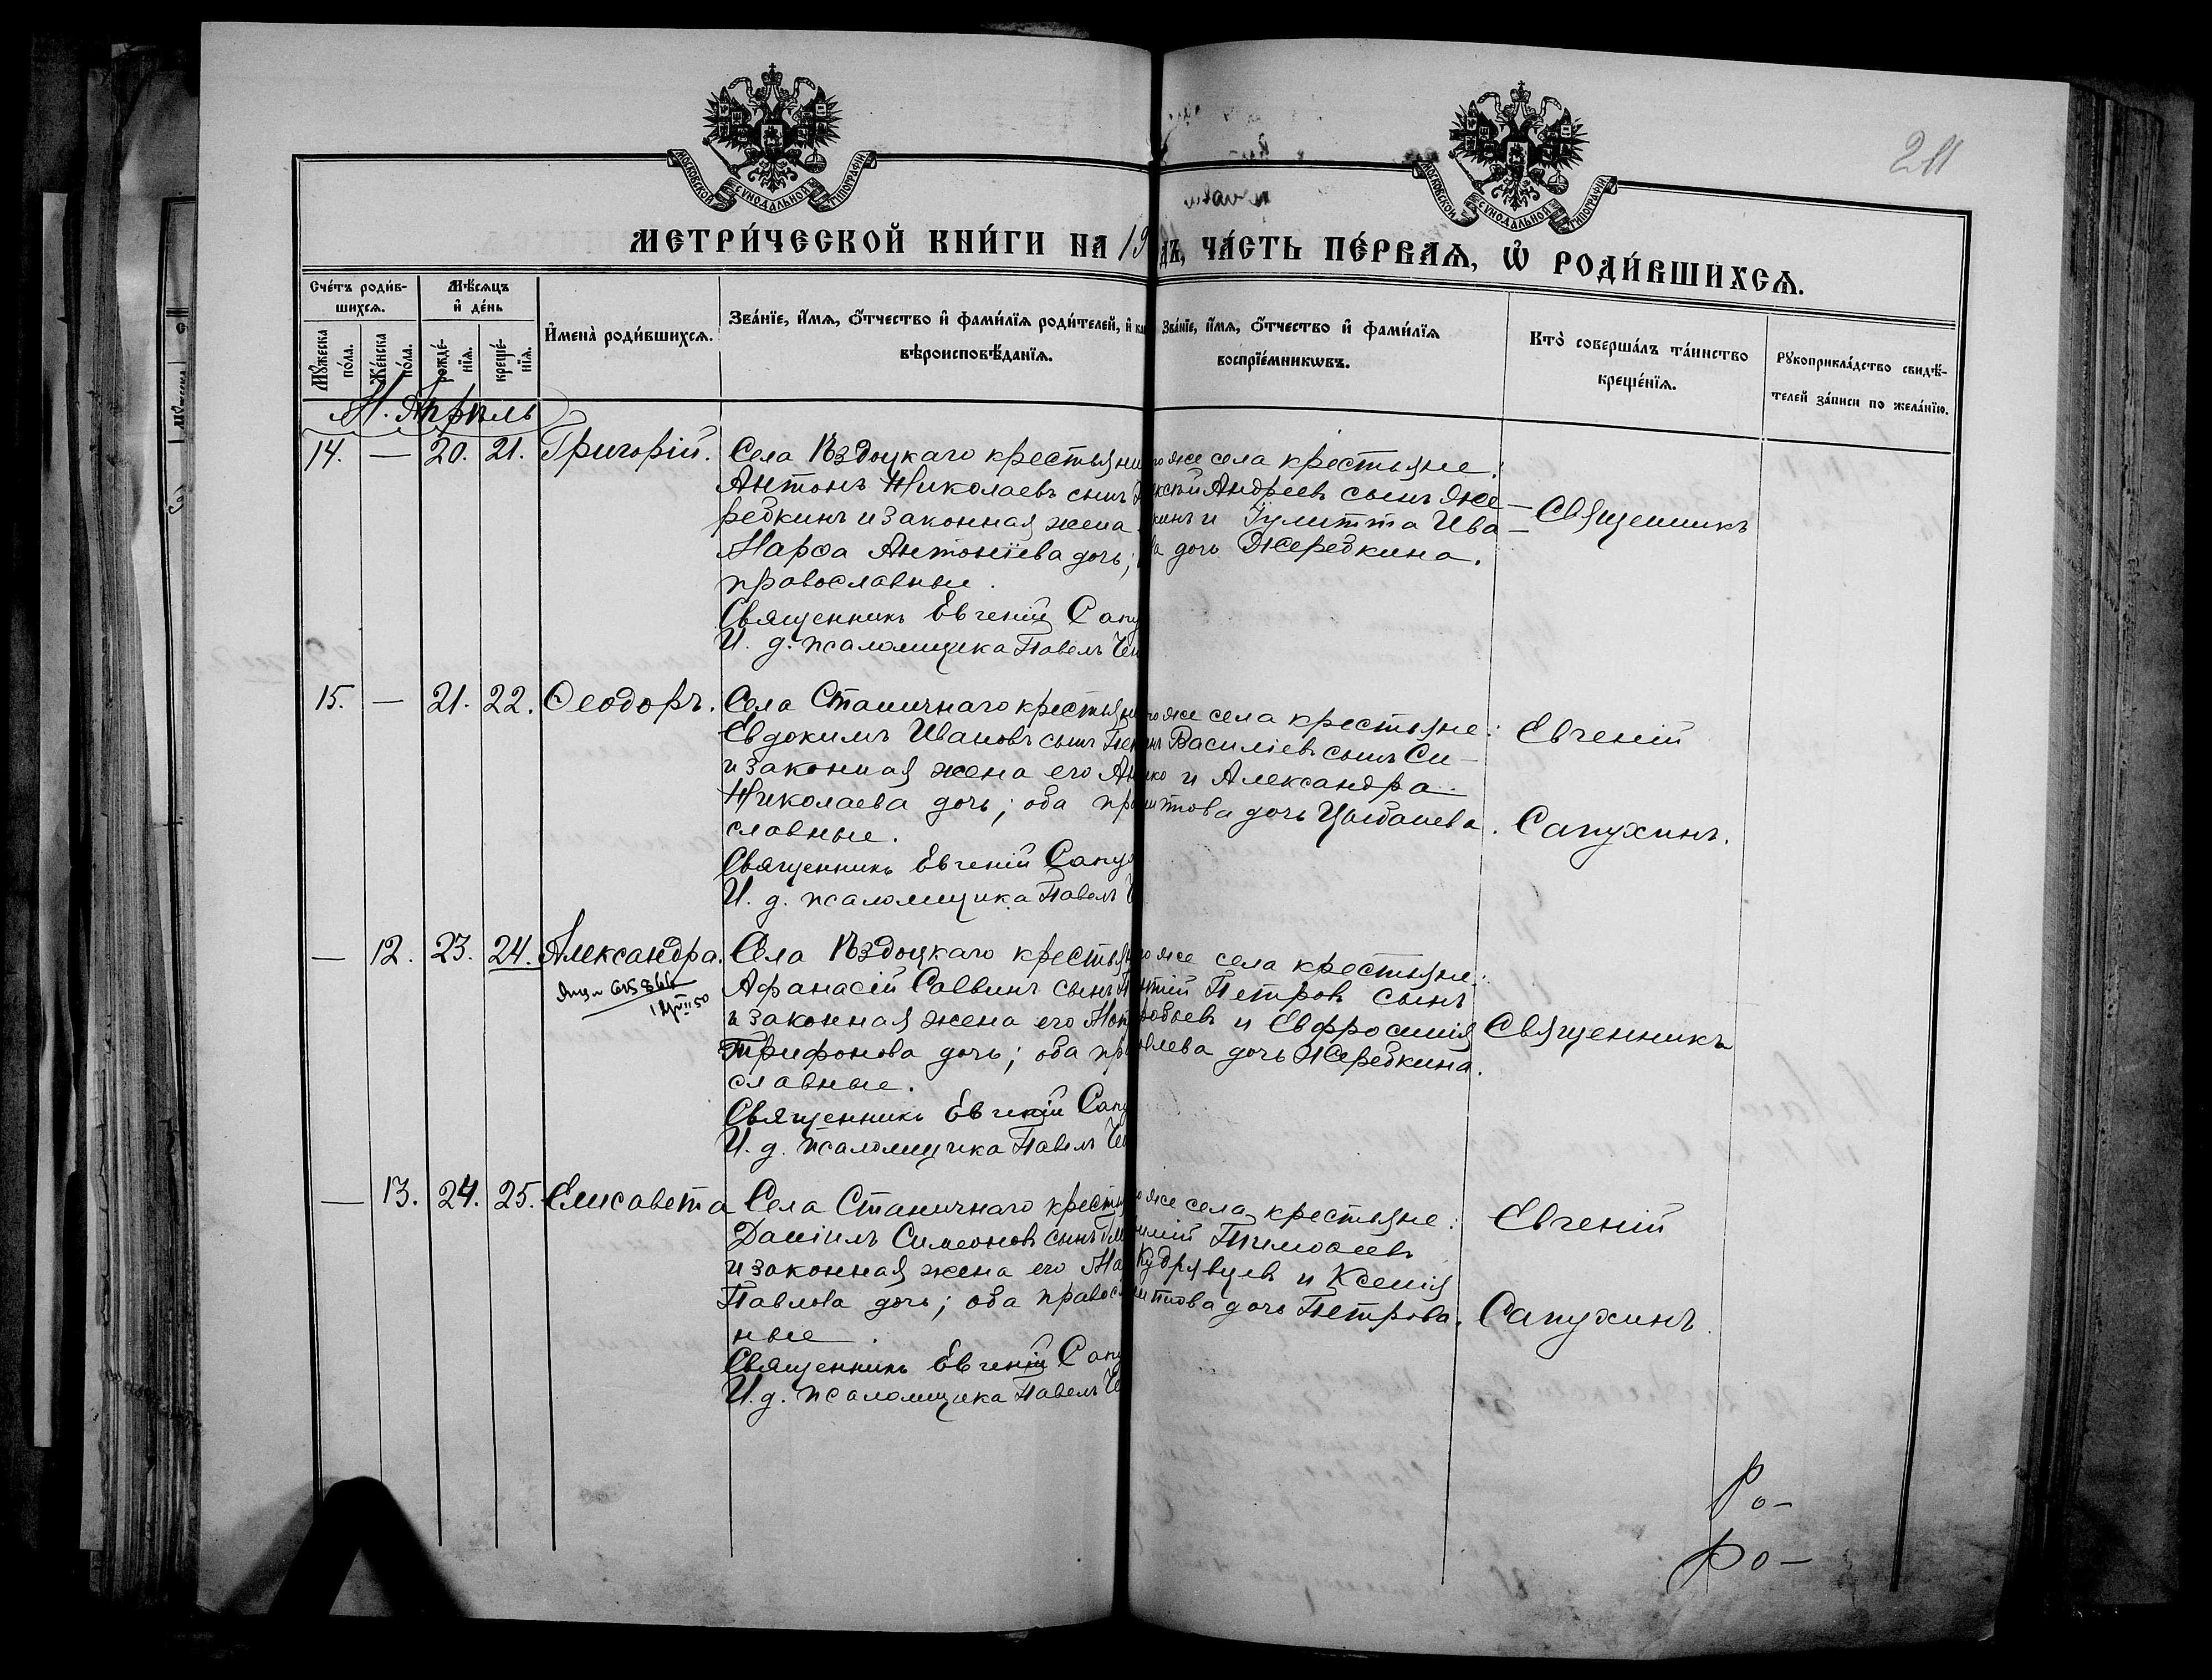 211
МОСКОВСКОЙ СѴНОДАЛЬНОЙ ТИПОГРАФІИ
МОСКОВСКОЙ СѴНОДАЛЬНОЙ ТИПОГРАФІИ
МЕТРИ́ЧЕСКОЙ КНИ́ГИ НА 19 ДЪ, ЧА́СТЬ ПЕ́РВАѦ, Ѡ҆ РОДИ́ВШИХСѦ.
Счéтъ роди́в-
шихсѧ.
Мꙋ́жеска по́ла.
Же́нска по́ла.
Мѣ́сѧцъ
и҆ де́нь
рожде́-
нїѧ.
креще́-
нїѧ.
И҆мена̀ роди́вшихсѧ.
Зва́нїе, и҆́мѧ, ѻ҆́тчество и҆ фами́лїѧ роди́телей, и҆ ка
вѣроисповѣ́данїѧ.
Зва́нїе, и҆́мѧ, ѻ҆́тчество и҆ фами́лїѧ
воспрїе́мникѡвъ.
Кто̀ соверша́лъ та́инство
креще́нїѧ.
Рꙋкоприкла́дство свидѣ́-
телей за́писи по жела́нїю.
М. Апрѣль
14. — 20. 21. Григорій.
Села Ѣздоцкаго крестьяни
Антонъ Николаевъ сынъ
ребкинъ и законная жена
Марѳа Антоніева дочь;
православные.
Священникъ Евгеній Сапу
И. д. псаломщика Павелъ
го же села крестьяне:
Андреевъ сынъ Же-
кинъ и Іулитта Ива-
ва дочь Жеребкина.
Священникъ
15. — 21. 22. Ѳеодоръ.
Села Станичнаго крестьяни
Евдокимъ Ивановъ сынъ
и законная жена его
Николаева дочь; оба пра
славные.
Священникъ Евгеній Сапу
И. д. псаломщика Павелъ
го же села крестьяне:
Василіевъ сынъ Си-
нко и Александра
итова дочь Цыбанева.
Евгеній
Сапухинъ.
— 12. 23. 24. Александра.
Села Ѣздоцкаго крестья
Аѳанасій Саввинъ сынъ
и законная жена его
Трифонова дочь; оба пр
славные.
Священникъ Евгеній Сапу
И. д. псаломщика Павелъ
го же села крестьяне:
Петровъ сынъ
робьевъ и Евфросинія
овлева дочь Жеребкина.
Священникъ
— 13. 24. 25. Елисавета
Села Станичнаго кресть
Даніилъ Симеоновъ сынъ
и законная жена его Ма
Павлова дочь; оба правосл
ные.
Священникъ Евгеній Сапу
И. д. псаломщика Павелъ
го же села крестьяне:
Тимоѳеевъ
Кудрявцевъ и Ксенія
итова дочь Петрова.
Евгеній
Сапухинъ.